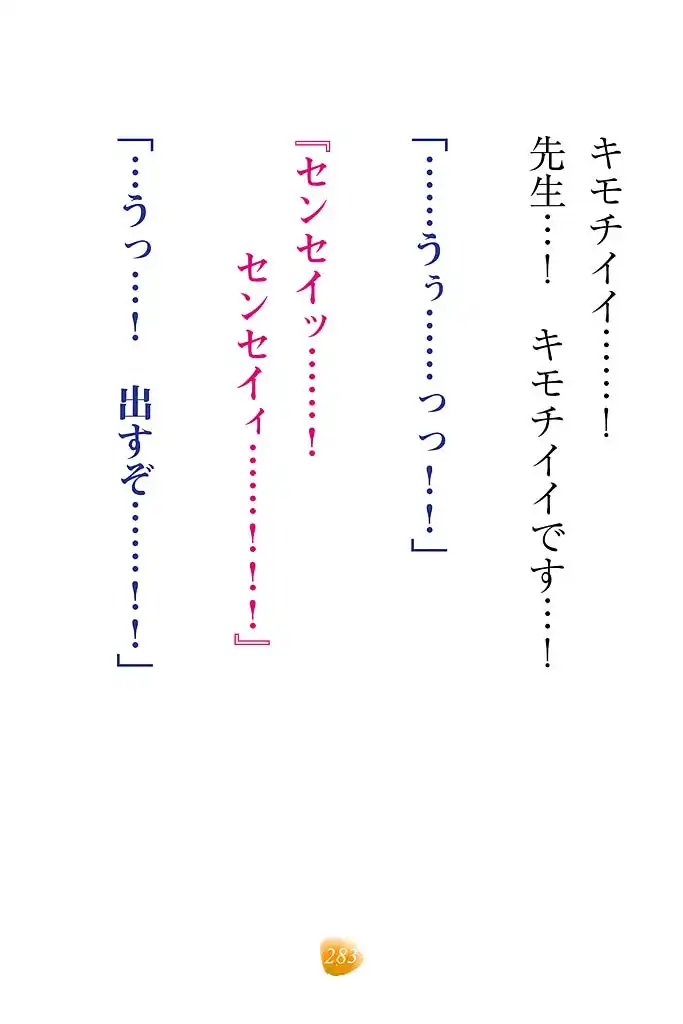 キモチイイ……！
先生…！　キモチイイです…！
「……うぅ……っっ！！」
『センセイッ……！
センセイィ……！！！』
「…うっ…！　出すぞ……！！」
283